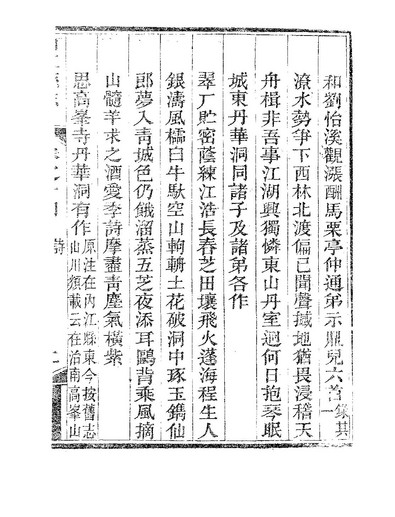 和劉怡溪觀漲酬馬栗亭仲通弟示鼎兒六首錄其一
潦水勢爭下西林北渡偏已聞聲撼地猶畏浸稽天
舟楫非吾事江湖興獨憐東山丹室迥何日抱琴眠
城東丹華洞同諸子及諸弟各作
翠厂貯密蔭練江浩長春芝田壤飛火蓬海程生人
銀濤風檣白牛馱空山軥輈土花破洞中琢玉鐫仙
郎夢入青城色仍餓溜蒸五芝夜添耳鷗背乘風摘
山髓羊求之酒愛季詩摩盡青塵氣橫紫
思高峯寺丹華洞有作原注在內江縣東今按舊志山川類載云在治南高峯山
詩